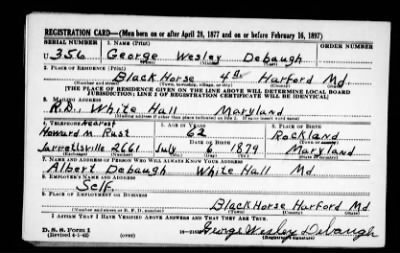 REGISTRATION CARD—(Men born on or after April 28, 1877 and on or before February 16, 1897)
SERIAL NUMBER 1. NAME (Print)
U 356 George Wesley Debaugh
2. PLACE OF RESIDENCE (Print)
Black Horse 4th Harford Md.
[THE PLACE OF RESIDENCE GIVEN ON THE LINE ABOVE WILL DETERMINE LOCAL BOARD
JURISDICTION; LINE 2 OF REGISTRATION CERTIFICATE WILL BE IDENTICAL]
3. MAILING ADDRESS
R.D. White Hall Maryland
[Mailing address if other than place indicated on line 2. If same insert word same]
4. TELEPHONE Nearest 5. AGE IN YEARS 6. PLACE OF BIRTH
Howard M. Rust 62 Rockland
DATE OF BIRTH
Jarrettsville 2661 July 1879 Maryland
7. NAME AND ADDRESS OF PERSON WHO WILL ALWAYS KNOW YOUR ADDRESS
Albert Debaugh White Hall Md
8. EMPLOYER'S NAME AND ADDRESS
Self.
9. PLACE OF EMPLOYMENT OR BUSINESS
Black Horse Harford Md
(Number and street or R. F. D. number) (Town) (County) (State)
I AFFIRM THAT I HAVE VERIFIED ABOVE ANSWERS AND THAT THEY ARE TRUE.
D. S. S. Form 1
(Revised 4-1-42) (over) George Wesley Debaugh
(Registrant's signature)